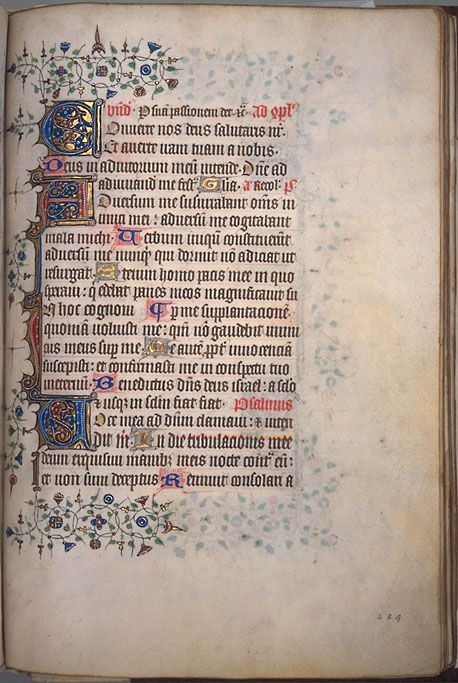 bn̄d. P suā passionem det. ⁊c̄ Ad 9pl'
Conuerte nos deus salutaris nr̄.
Et auerte iram tuam a nobis.
Deus in adiutorium meū intende. Dn̄e ad
adiuuand me fest̄. Glīa. a recol. p̄.
Aduersum me susurrabant om̄s in
imici mei : aduersū me cogitabant
mala michi. Uerbum iniquū constituerūt
aduersū me nunq̄ qui dormit nō adiciat ut
resurgat. Etenim homo pacis mee in quo
speraui : q̄ edebat panes meos magnificauit suꝑ
In hoc cognoui
me supplantacionē.
quoniā voluisti me : qm̄ nō gaudebit inimi
cus meus suꝑ me. Me autē ꝓpt̄ innocenciā
suscepisti : et cōfirmasti me in conspectu tuo
ineternū. Benedictus dn̄s deus israel : a sc̄lo
⁊ usqꝫ in sc̄lm fiat fiat. Psalmus
Uoce mea ad dn̄um clamaui : ⁊ inten
dit m̄. In die tribulacionis mee
deum exquisiui manibꝫ meis nocte cont̄ eū :
et non sum deceptus Renuit consolari a
284